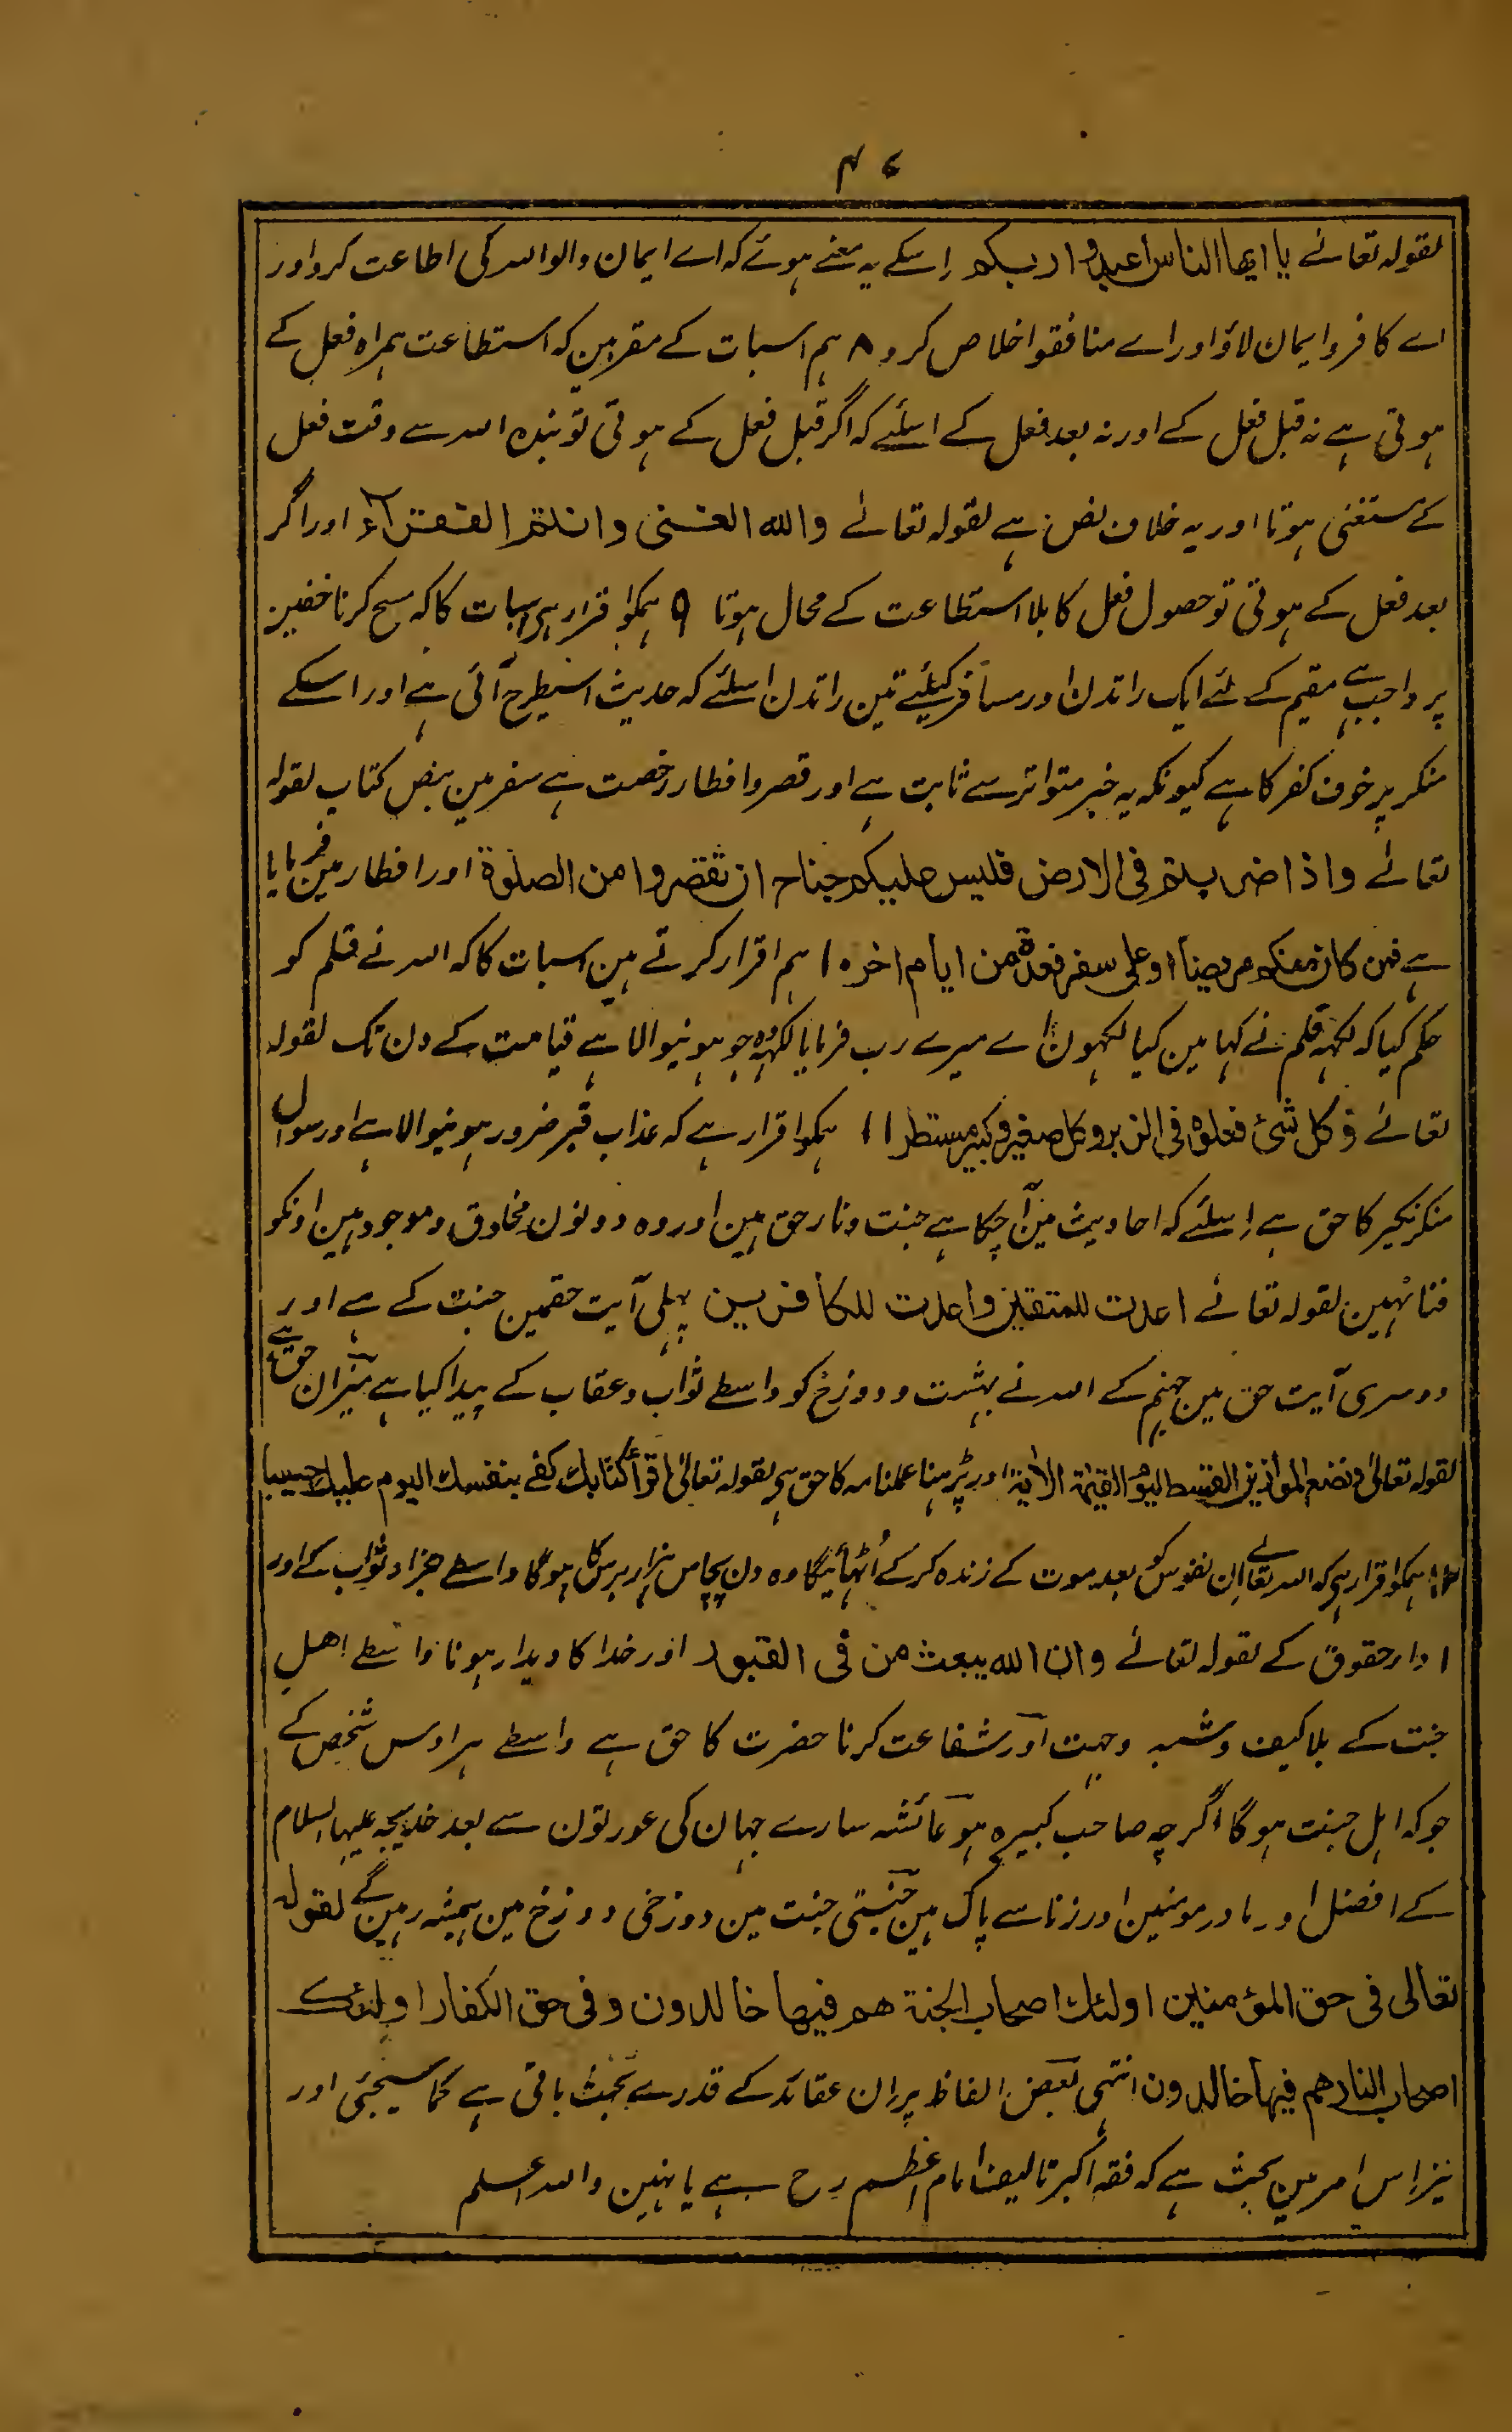 ۴۶
لقولہ تعالے یا ایھا الناس اعبدوا ربکم اِسکے یہ معنے ہوئے کہ اے ایمان والو اللہ کی اطاعت کرو اور
اے کافرو ایمان لاؤ اور اے منافقو اخلاص کرو ۸ ہم اسبات کے مقر ہین کہ استطاعت ہمراہ فعل کے
ہوتی ہے نہ قبل فعل کے اور نہ بعد فعل کے اسلئے کہ اگر قبل فعل کے ہوتی تو بندہ اللہ سے وقت فعل
کے مستغنی ہوتا اور یہ خلاف نص ہے لقولہ تعالے واللہ الغنی وانتم الفقراء اور اگر
بعد فعل کے ہوتی تو حصول فعل کا بلا استطاعت کے محال ہوتا ۹ ہمکو اقرار ہی اسبات کا کہ مسح کرنا خفین
پر واجب ہے مقیم کے لئے ایک راتدن اور مسافر کیلئے تین راتدن اسلئے کہ حدیث اسیطرح آئی ہے اور اسکے
منکر پر خوف کفر کا ہے کیونکہ یہ خبر متواتر سے ثابت ہے اور قصر و افطار رخصت ہے سفر مین بنص کتاب لقولہ
تعالے واذا ضربتم فی الارض فلیس علیکم جناح ان تقصروا من الصلوۃ اور افطار مین فرمایا
ہے فمن کان منکم مریضا او علی سفر فعدۃ من ایام اخر ۱۰ ہم اقرار کرتے ہین اسبات کا کہ اللہ نے قلم کو
حکم کیا کہ لکہہ قلم نے کہا مین کیا لکہون اے میرے رب فرمایا لکہہ وہ جو ہونیوالا ہے قیامت کے دن تک لقولہ
تعالے وکل شئ فعلوہ فی الزبر وکل صغیر وکبیر مستطر ۱۱ ہمکو اقرار ہے کہ عذاب قبر ضرور ہونیوالا ہے اور سوال
منکر نکیر کا حق ہے اِسلئے کہ احادیث مین آچکا ہے جنت و نار حق ہین اور وہ دونون مخلوق و موجود ہین اونکو
فنا نہین لقولہ تعالے اعدت للمتقین واعدت للکافرین پہلی آیت حقمین جنت کے ہے اور
دوسری آیت حق مین جہنم کے اللہ نے بہشت و دوزخ کو واسطے ثواب و عقاب کے پیدا کیا ہے میزان حق ہے
لقولہ تعالی ونضع الموازین القسط لیوم القیمۃ الآیۃ اور پڑہنا عملنامہ کا حق ہی لقولہ تعالی اقرأ کتابک کفے بنفسک الیوم علیک حسیبا
۱۲ ہمکو اقرار ہی کہ اللہ تعالے ان نفوس کو بعد موت کے زندہ کرکے اُٹہائیگا وہ دن پچاس ہزار برس کا ہوگا واسطے جزا و ثواب کے اور
ادار حقوق کے لقولہ تعالے وان اللہ یبعث من فی القبور اور خدا کا دیدار ہونا واسطے اھل
جنت کے بلا کیف و شبہ وجہت اور شفاعت کرنا حضرت کا حق ہے واسطے ہر اوس شخص کے
جو کہ اہل جنت ہوگا اگرچہ صاحب کبیرہ ہو عائشہ سارے جہان کی عورتون سے بعد خدیجہ علیہا السلام
کے افضل اور مادر مومنین اور زنا سے پاک ہین جنتی جنت مین دوزخی دوزخ مین ہمیشہ رہین گے لقولہ
تعالی فی حق المؤمنین اولئک اصحاب الجنۃ ھم فیھا خالدون وفی حق الکفار اولئک
اصحاب النار ھم فیھا خالدون انتہی بعض الفاظ پر ان عقائد کے قدرے بحث باقی ہے کما سیجئی اور
نیز اِس امر مین بحث ہے کہ فقہ اکبر تالیف امام اعظم رح ہے یا نہین واللہ اعلم